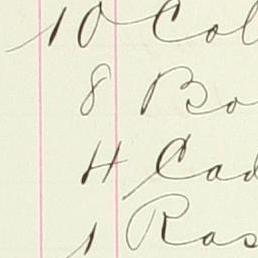 10 Col
8 Bo
4 Cad
1 Ras